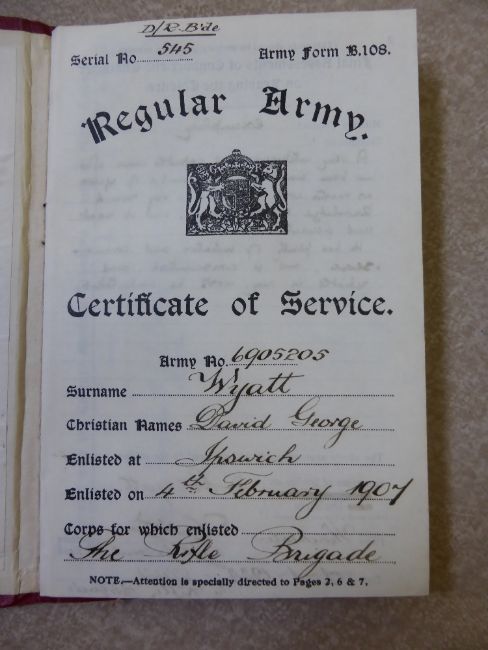 D/R. B'de
Serial No. 545 Army Form B.108.
Regular Army.
Certificate of Service.
Army No. 6905205
Surname Wyatt
Christian Names David George
Enlisted at Ipswich
Enlisted on 4th February 1907
Corps for which enlisted
The Rifle Brigade
NOTE.—Attention is specially directed to Pages 2, 6 & 7,